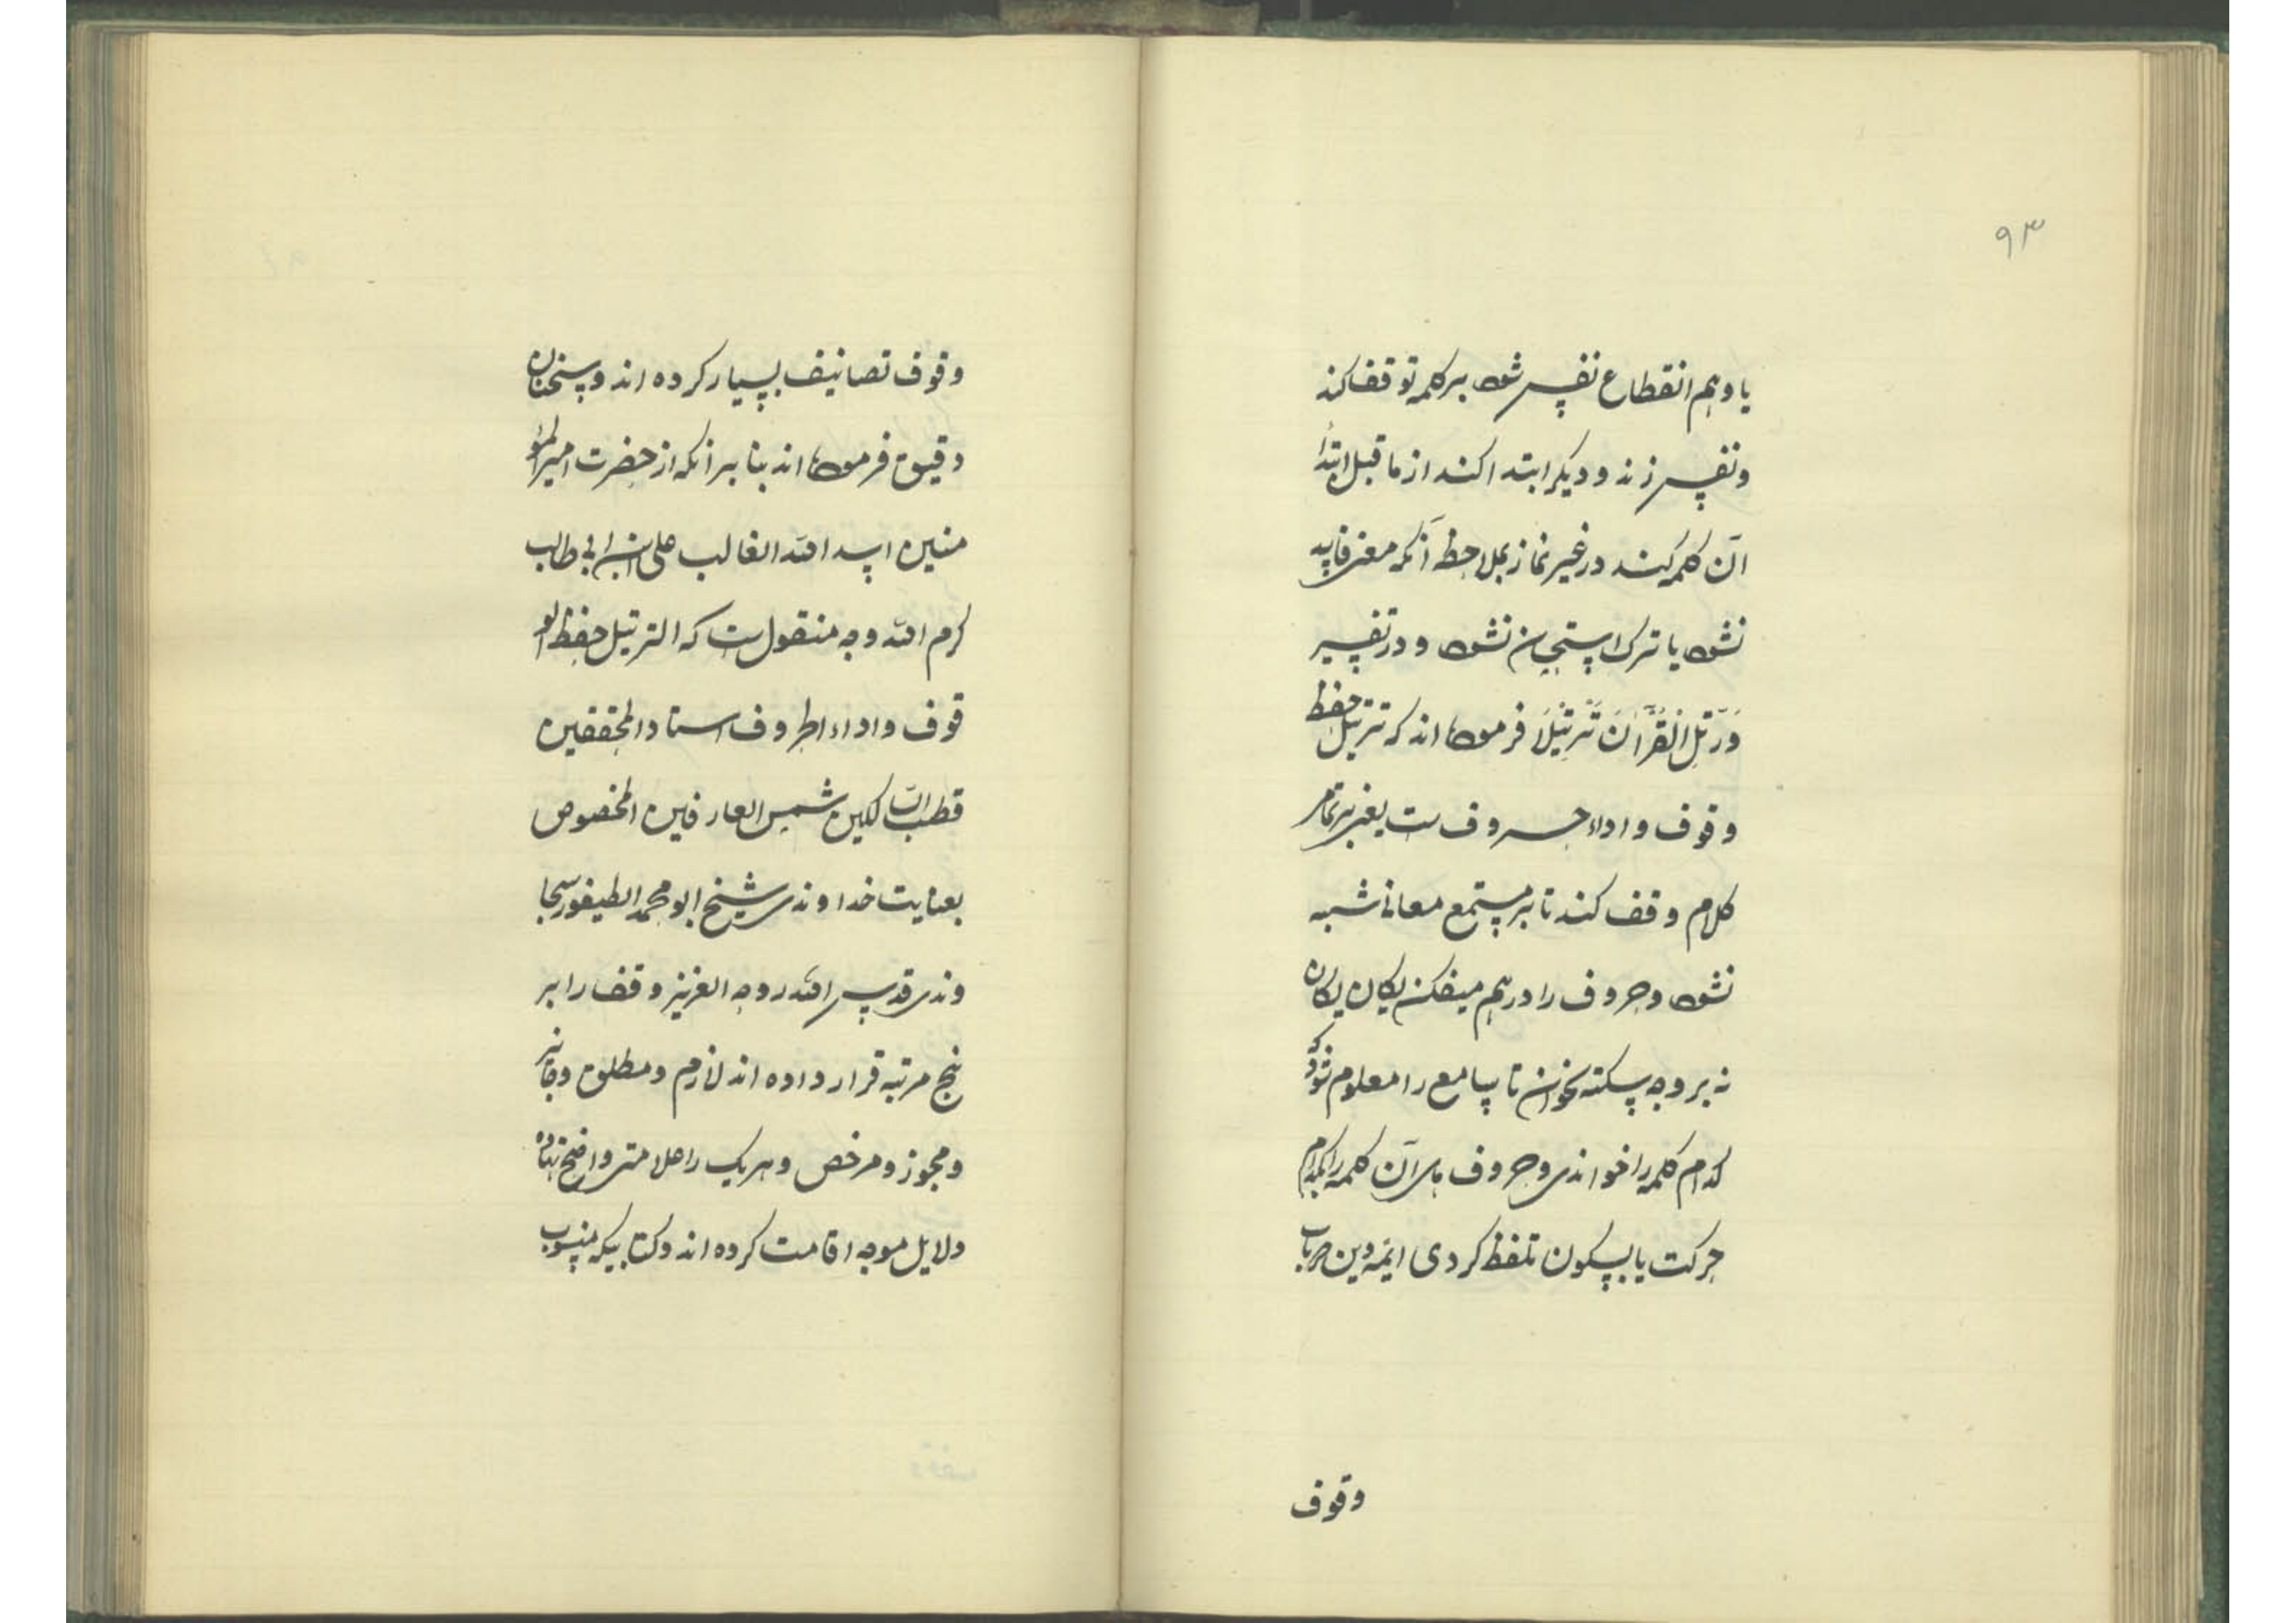 ۹۳
یا وهم انقطاع نفس شود بر کلمه توقف کند
و نفس زند و دیکر ابتدا کند از ما قبل ابتدأ
آن کلمه کند در غیر نماز بملاحظه آنکه معنی فاسد
نشود یا ترک استحسان نشود و در تفسیر
وَرَتِّلِ الْقُرْآنَ تَرْتِيْلًا فرموده اند که ترتیل حفظ
وقوف و اداء حروف ست یعنی بر تمام
کلام وقف کند تا بر مستمع معانی شبه
نشود و حروف را درهم میفکن یکان یکان
نه بر وجه سکته بخوان تا سامع را معلوم شود که
کدام کلمه را خواندی و حروف های آن کلمه را بکدام
حرکت یا بسکون تلفظ کردی ایمه دین در باب
وقوف
وقوف تصانیف بسیار کرده اند و سخنان
دقیق فرموده اند بنا بر آنکه از حضرت امیر المؤ
منین اسد الله الغالب علی ابن ابی طالب
کرم الله وجه منقول ست که الترتیل حفظ الو
قوف و اداء الحروف استاد المحققین
قطب السالکین شمس العارفین المخصوص
بعنایت خداوندی شیخ ابو محمد الطیفور سجا
وندی قدس الله روحه العزیز وقف را بر
پنج مرتبه قرار داده اند لازم و مطلق و جایز
و مجوز و مرخص و هر یک را علامتی واضح نهاده
دلایل موجه اقامت کرده اند و کتابیکه منسوب